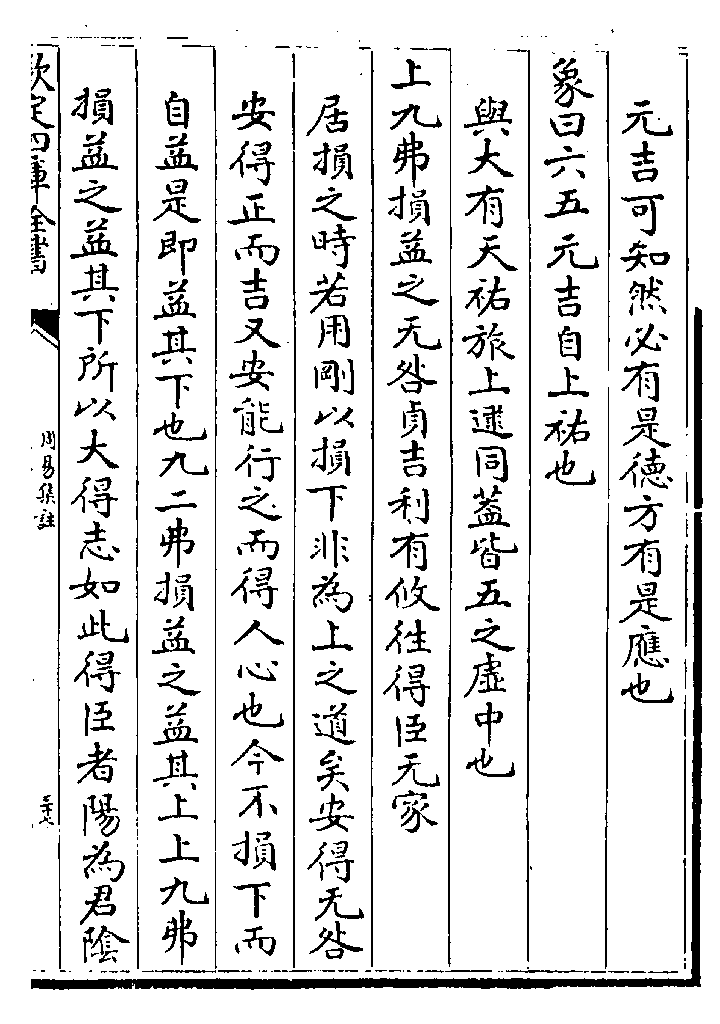 元吉可知然必有是德方有是應也
象曰六五元吉自上祐也
與大有天祐旅上逮同蓋皆五之虛中也
上九弗損益之无咎貞吉利有攸往得臣无家
居損之時若用剛以損下非為上之道矣安得无咎
安得正而吉又安能行之而得人心也今不損下而
自益是即益其下也九二弗損益之益其上上九弗
損益之益其下所以大得志如此得臣者陽為君陰
欽定四庫全書
周易集註
三十七